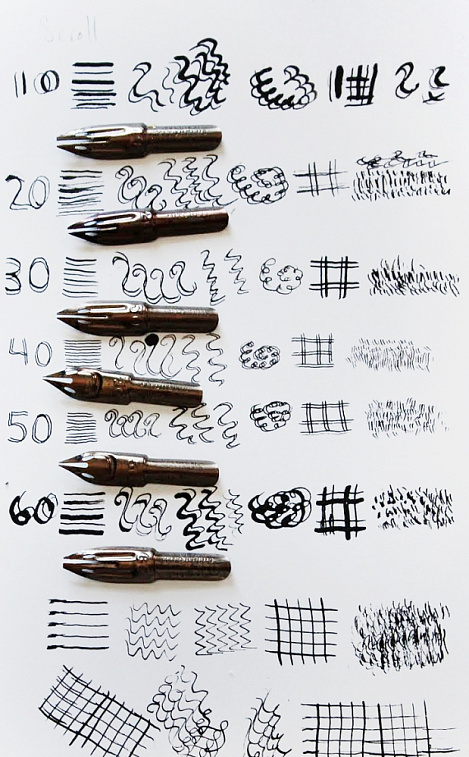 Scroll
10
20
30
40
50
60